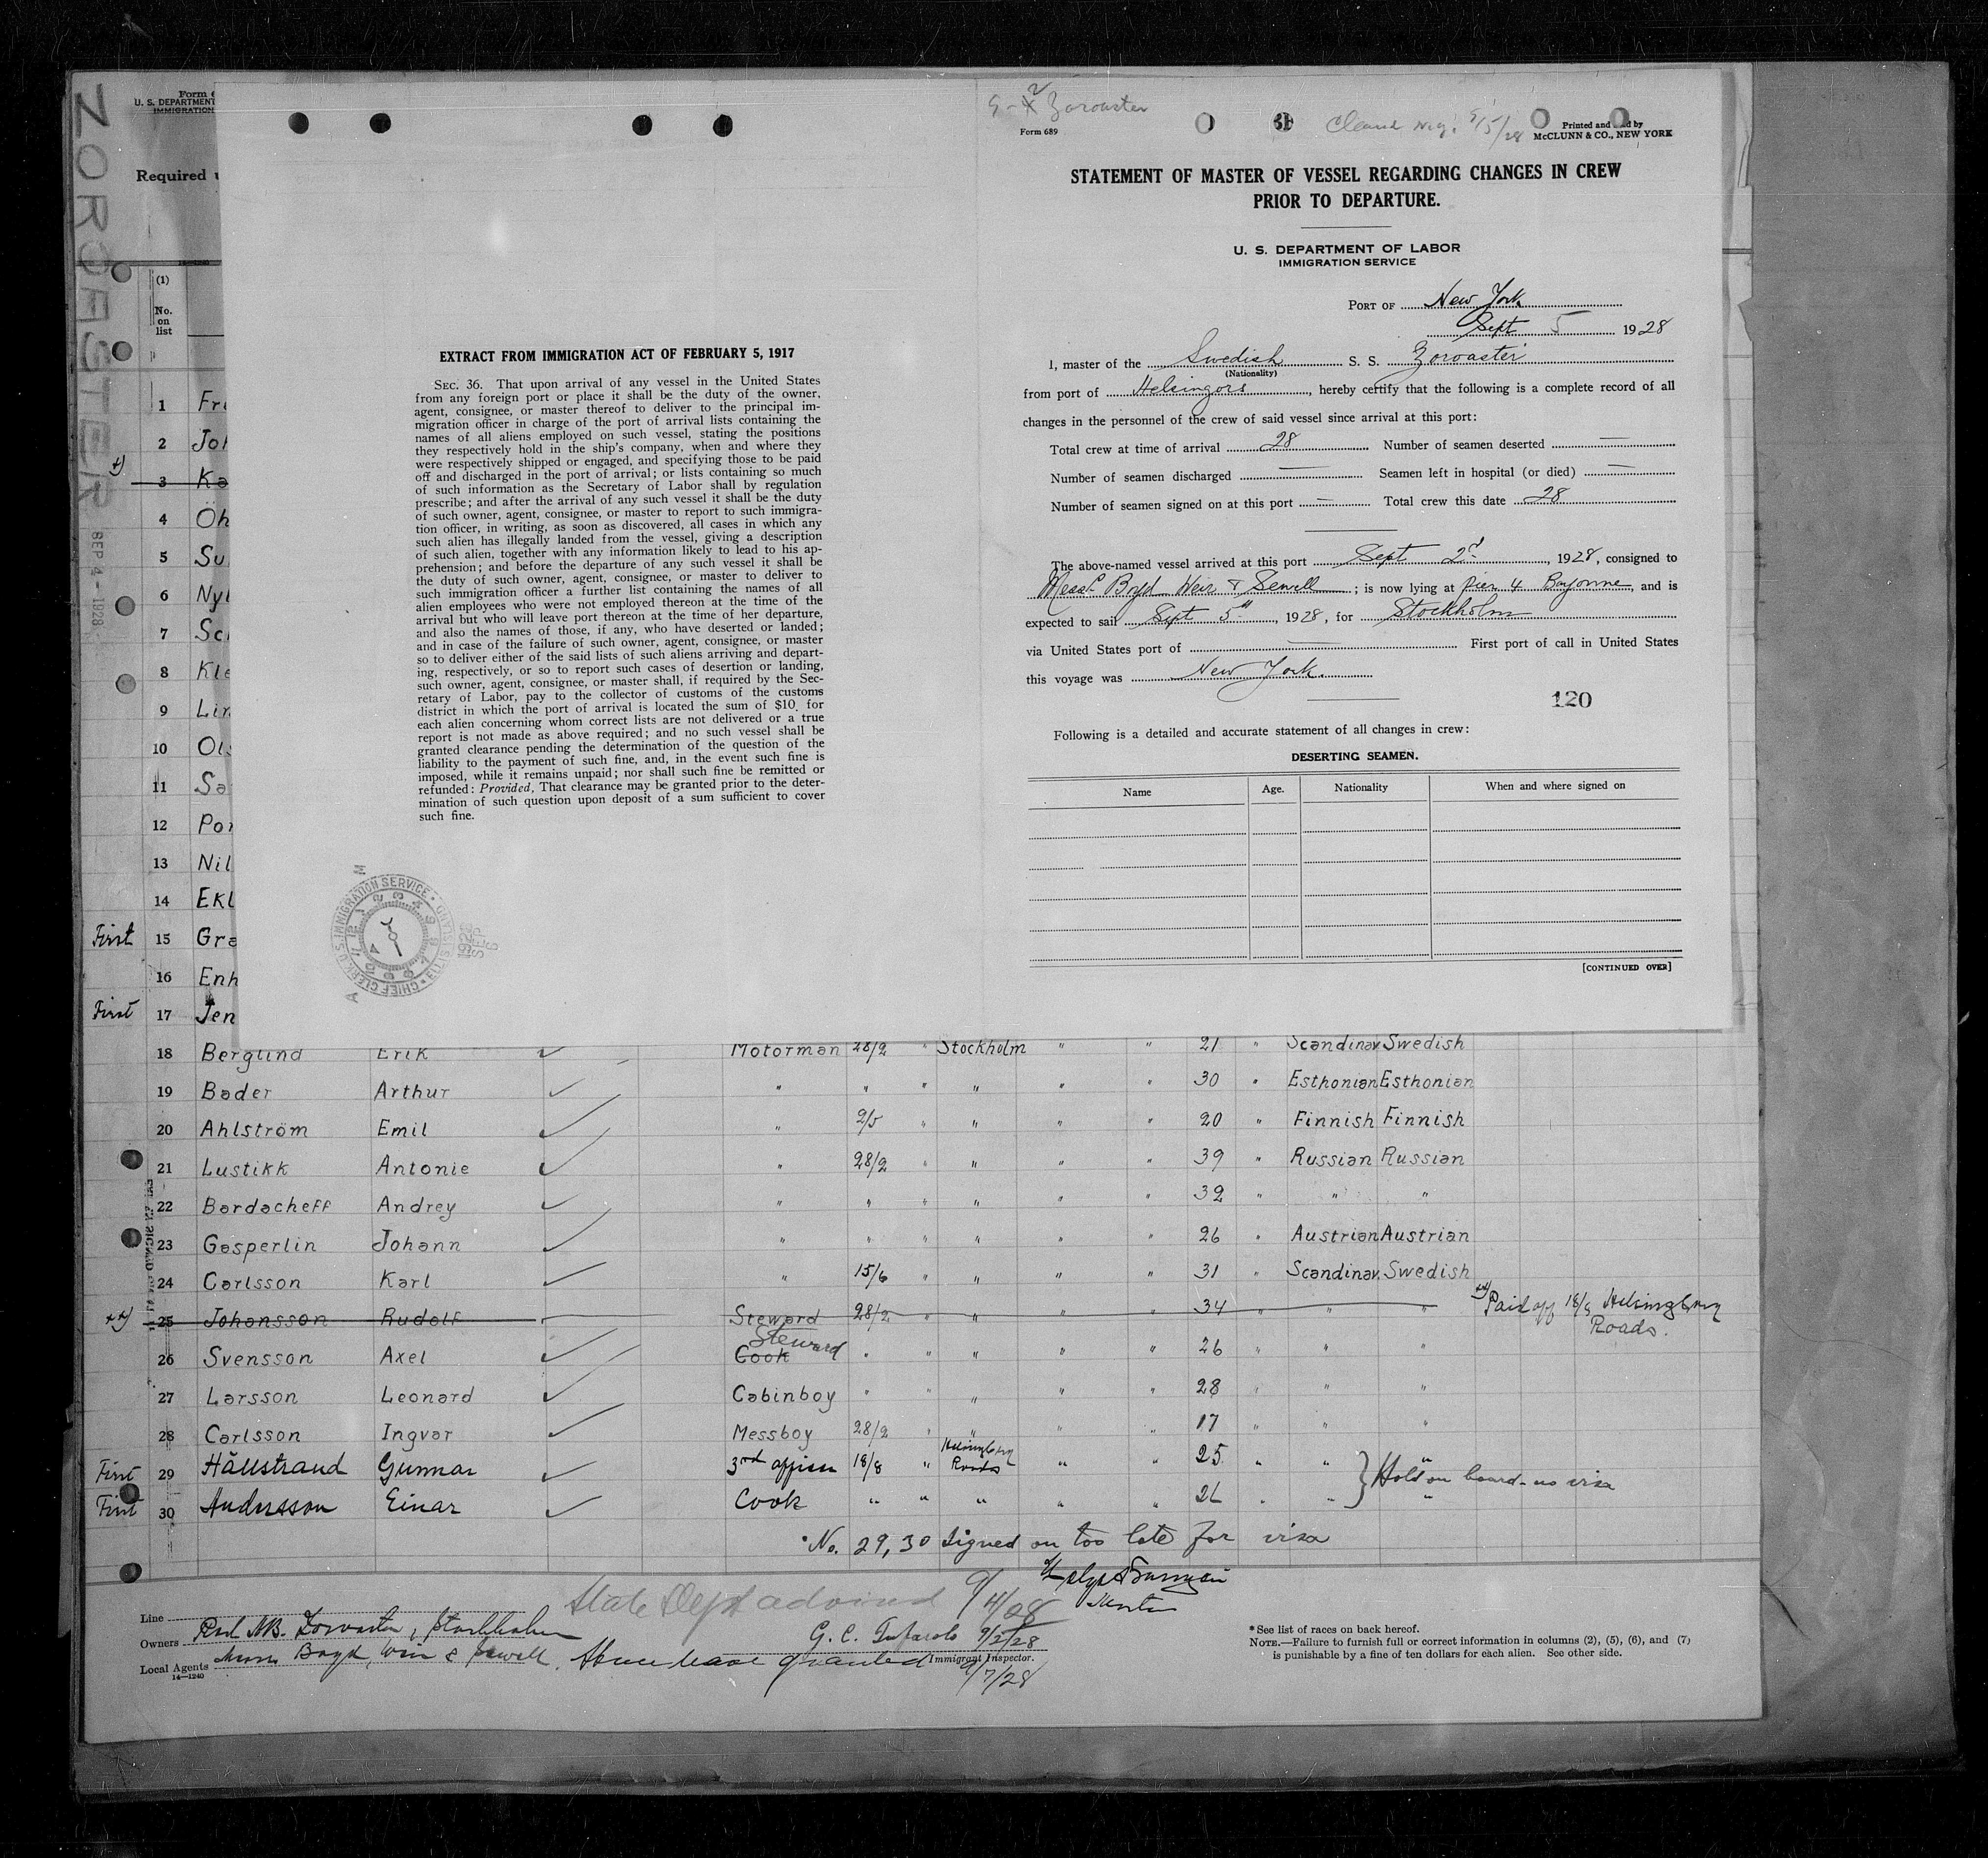 ZOROASTER
SEP 4-1928
Form
U. S. DEPARTMENT
IMMIGRATION
Required
14—1240
(1)
No.
on
list
1 Fr
2 Jo
3 Ka
4 Öh
5 Su
6 Nyl
7 Sc
8 Kle
9 Lin
10 Ols
11 Sa
12 Por
13 Nil
14 Ekl
First 15 Gra
16 Enh
First 17 Jen
EXTRACT FROM IMMIGRATION ACT OF FEBRUARY 5, 1917
SEC. 36. That upon arrival of any vessel in the United States
from any foreign port or place it shall be the duty of the owner,
agent, consignee, or master thereof to deliver to the principal im-
migration officer in charge of the port of arrival lists containing the
names of all aliens employed on such vessel, stating the positions
they respectively hold in the ship's company, when and where they
were respectively shipped or engaged, and specifying those to be paid
off and discharged in the port of arrival; or lists containing so much
of such information as the Secretary of Labor shall by regulation
prescribe; and after the arrival of any such vessel it shall be the duty
of such owner, agent, consignee, or master to report to such immigra-
tion officer, in writing, as soon as discovered, all cases in which any
such alien has illegally landed from the vessel, giving a description
of such alien, together with any information likely to lead to his ap-
prehension; and before the departure of any such vessel it shall be
the duty of such owner, agent, consignee, or master to deliver to
such immigration officer a further list containing the names of all
alien employees who were not employed thereon at the time of the
arrival but who will leave port thereon at the time of her departure,
and also the names of those, if any, who have deserted or landed;
and in case of the failure of such owner, agent, consignee, or master
so to deliver either of the said lists of such aliens arriving and depart-
ing, respectively, or so to report such cases of desertion or landing,
such owner, agent, consignee, or master shall, if required by the Sec-
retary of Labor, pay to the collector of customs of the customs
district in which the port of arrival is located the sum of $10 for
each alien concerning whom correct lists are not delivered or a true
report is not made as above required; and no such vessel shall be
granted clearance pending the determination of the question of the
liability to the payment of such fine, and, in the event such fine is
imposed, while it remains unpaid; nor shall such fine be remitted or
refunded: Provided, That clearance may be granted prior to the deter-
mination of such question upon deposit of a sum sufficient to cover
such fine.
U.S. IMMIGRATION SERVICE · ELLIS ISLAND · CHIEF CLERK
SEP 6
Zoroaster
Form 689
9/5/28
Printed and by
McCLUNN & CO., NEW YORK
STATEMENT OF MASTER OF VESSEL REGARDING CHANGES IN CREW
PRIOR TO DEPARTURE.
U. S. DEPARTMENT OF LABOR
IMMIGRATION SERVICE
PORT OF New York
Sept 5 1928
I, master of the Swedish S. S. Zoroaster
(Nationality)
from port of Helsingors, hereby certify that the following is a complete record of all
changes in the personnel of the crew of said vessel since arrival at this port:
Total crew at time of arrival 28 Number of seamen deserted —
Number of seamen discharged — Seamen left in hospital (or died) —
Number of seamen signed on at this port — Total crew this date 28
The above-named vessel arrived at this port Sept 2d, 1928, consigned to
Messrs Boyd Weir & Sewell; is now lying at pier 4 Bayonne, and is
expected to sail Sept 5th, 1928, for Stockholm
via United States port of — First port of call in United States
this voyage was New York.
120
Following is a detailed and accurate statement of all changes in crew:
DESERTING SEAMEN.
Name Age. Nationality When and where signed on
[CONTINUED OVER]
18 Berglund Erik Motorman 28/2 " Stockholm " " 21 " Scandinav. Swedish
19 Bader Arthur " " " " " " 30 " Esthonian Esthonian
20 Ahlström Emil " 2/5 " " " " 20 " Finnish Finnish
21 Lustikk Antonie " 28/2 " " " " 39 " Russian Russian
22 Bardacheff Andrey " " " " " " 32 " " "
23 Gasperlin Johann " " " " " " 26 " Austrian Austrian
24 Carlsson Karl " 15/6 " " " " 31 " Scandinav. Swedish
xx) 25 Johansson Rudolf Steward 28/2 " " " " 34 " " " xx) Paid off 18/8 Helsingborg
Roads.
Steward
26 Svensson Axel Cook " " " " " 26 " " "
27 Larsson Leonard Cabinboy " " " " " 28 " " "
28 Carlsson Ingvar Messboy 28/2 " " " " 17 " " "
First 29 Hällstrand Gunnar 3rd officer 18/8 " Helsingborg Roads " " 25 " " "
Hold on board - no visa
First 30 Andersson Einar Cook " " " " " 26 " " "
No. 29, 30 Signed on too late for visa
State Dept advised 9/4/28
Line
Owners Stockholm
G. C. 9/2/28
Immigrant Inspector.
Local Agents Messrs Boyd, Weir & Sewell.
Shore leave granted 9/7/28
14—1240
* See list of races on back hereof.
NOTE.—Failure to furnish full or correct information in columns (2), (5), (6), and (7)
is punishable by a fine of ten dollars for each alien. See other side.